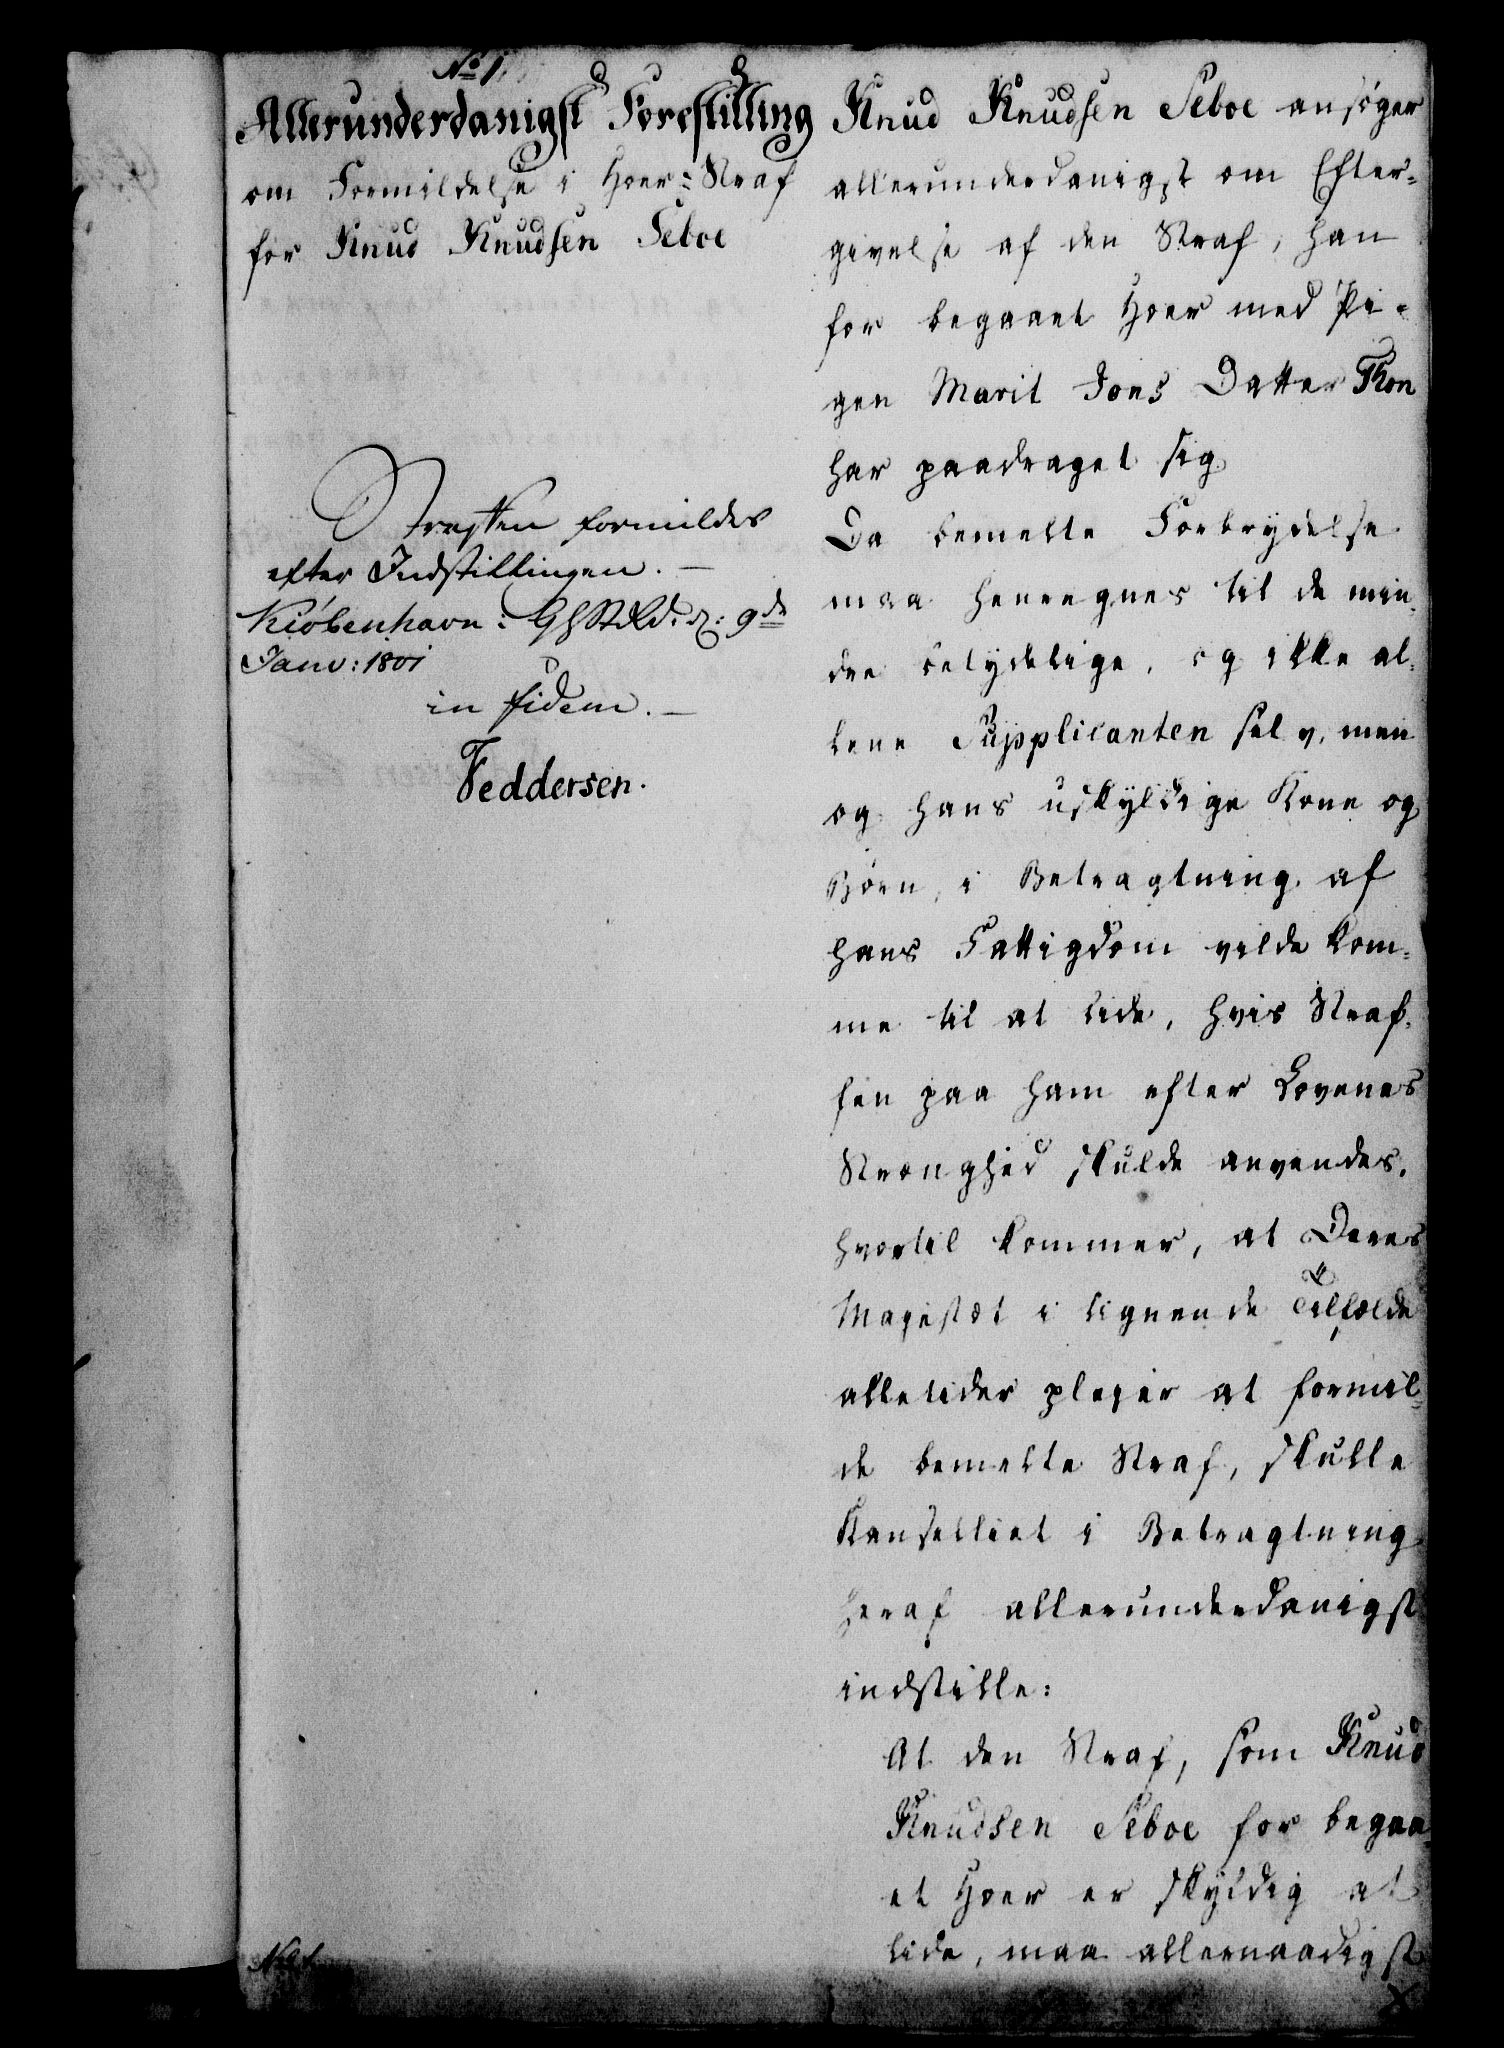 No 1.
Allerunderdanigst Forestilling
om Formildelse i Hoer=Straf
for Knud Knudsen Seboe
Straffen formildes
efter Indstillingen. —
Kiöbenhavn: d: 9de
Janv: 1801
in fidem. —
Feddersen.
Knud Knudsen Seboe ansøger
allerunderdanigst om Efter-
givelse af den Straf, han
for begaaet Hoer med Pi-
gen Marit Jons Datter Thon
har paadraget sig
Da bemelte Forbrydelse
maa henregnes til de min-
dre betydelige, og ikke al-
lene Supplicanten selv, men
og hans uskyldige Kone og
Börn, i Betragtning af
hans Fattigdom vilde kom-
me til at lide, hvis Straf-
fen paa ham efter Lovenes
Strenghed skulde anvendes,
hvortil kommer, at Deres
Majestæt i lignende Tilfælde
alletider plejer at formil-
de bemelte Straf, skulle
Kanselliet i Betragtning
heraf allerunderdanigst
indstille:
At den Straf, som Knud
Knudsen Seboe for begaa-
et Hoer er skyldig at
lide, maa allernaadigst